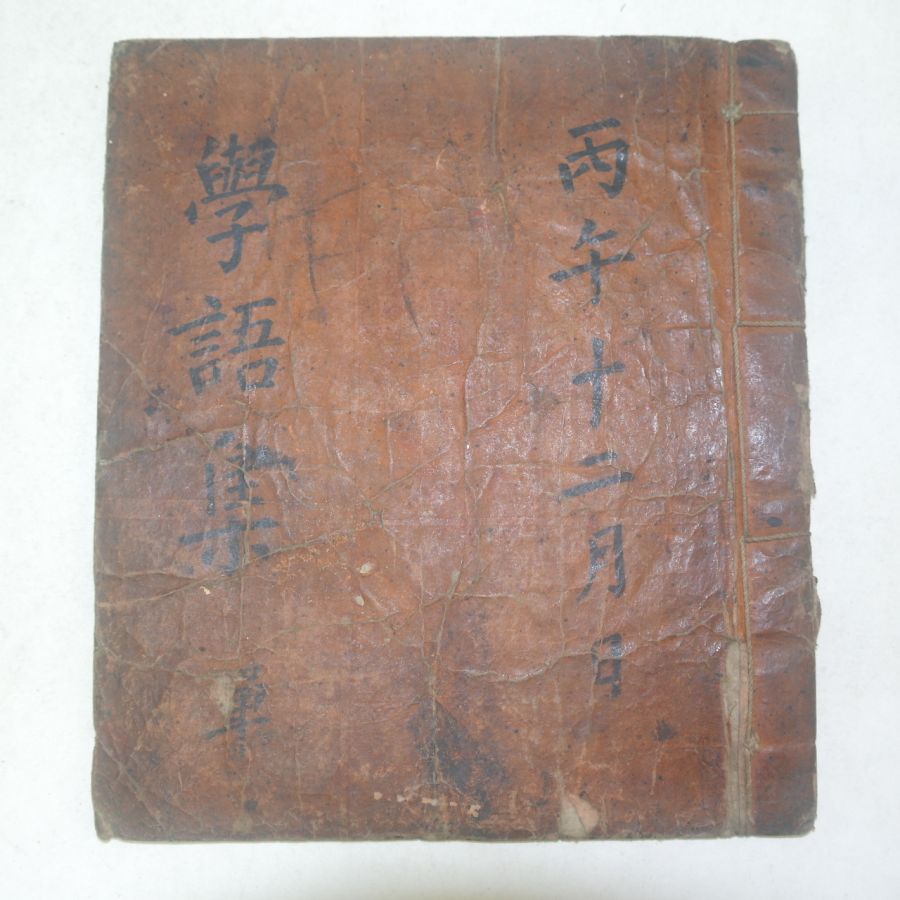 丙午十二月日
學語集